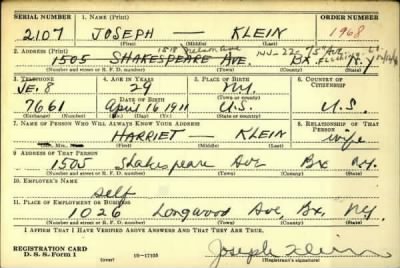 SERIAL NUMBER 1. NAME (Print) ORDER NUMBER
2107 JOSEPH — KLEIN 1968
(First) (Middle) (Last)
2. ADDRESS (Print)
1505 SHAKESPEARE AVE. BX. N.Y.
(Number and street or R. F. D. number) (Town) (County) (State)
3. TELEPHONE 4. AGE IN YEARS 5. PLACE OF BIRTH 6. COUNTRY OF CITIZENSHIP
JE. 8 29 N.Y.
DATE OF BIRTH (Town or county)
7661 April 16 1911 U.S. U.S.
(Exchange) (Number) (Mo.) (Day) (Yr.) (State or country)
7. NAME OF PERSON WHO WILL ALWAYS KNOW YOUR ADDRESS 8. RELATIONSHIP OF THAT PERSON
HARRIET — KLEIN wife
(Mr., Mrs., Miss) (First) (Middle) (Last)
9. ADDRESS OF THAT PERSON
1505 Shakespeare Ave Bx N.Y.
(Number and street or R. F. D. number) (Town) (County) (State)
10. EMPLOYER'S NAME
Self
11. PLACE OF EMPLOYMENT OR BUSINESS
1026 Longwood Ave, Bx, N.Y.
(Number and street or R. F. D. number) (Town) (County) (State)
I AFFIRM THAT I HAVE VERIFIED ABOVE ANSWERS AND THAT THEY ARE TRUE.
REGISTRATION CARD
D. S. S. Form 1 (over) 16—17105 Joseph Klein
(Registrant's signature)